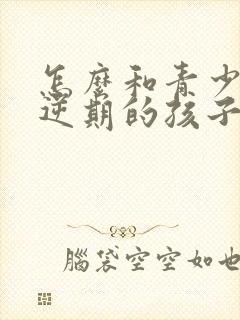 怎麼和青少
逆期的孩子
腦袋空空如也